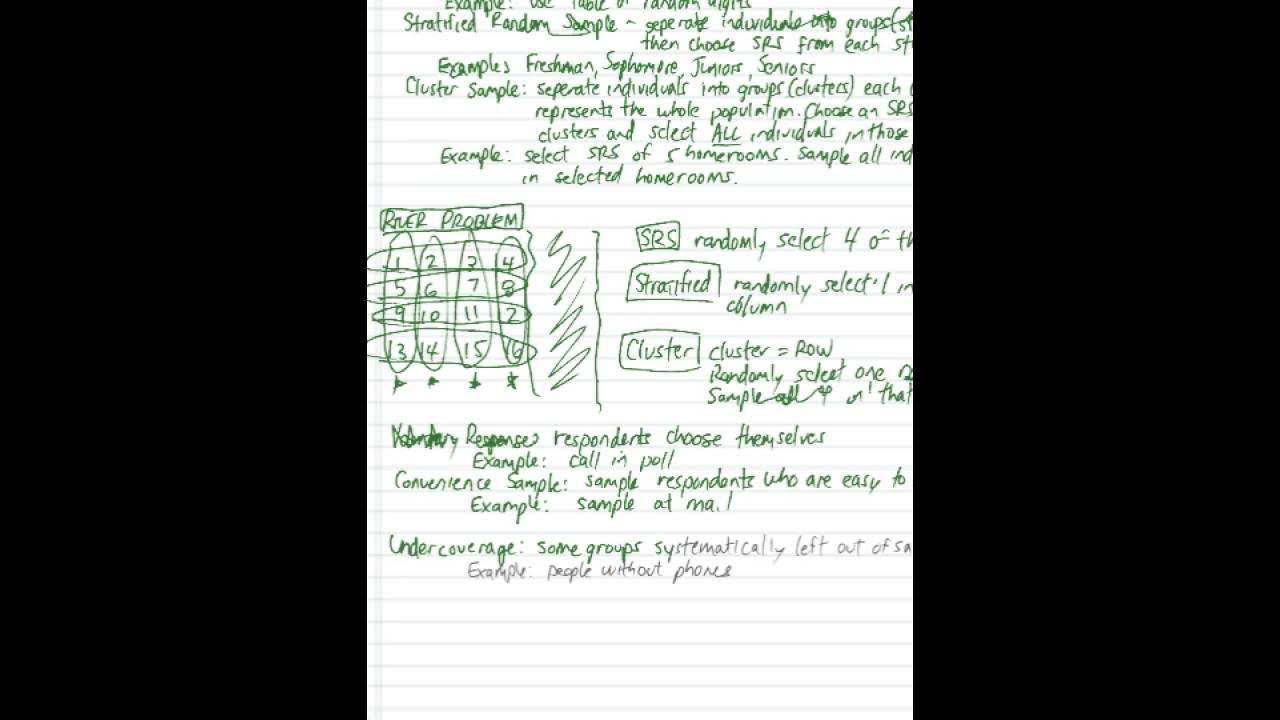 Example: Use Table of random digits
Stratified Random Sample - seperate individuals into groups (st
then choose SRS from each st
Examples Freshman, Sophomore, Juniors, Seniors
Cluster Sample: seperate individuals into groups (clusters) each
represents the whole population. Choose an SRS
clusters and select ALL individuals in those
Example: select SRS of 5 homerooms. Sample all ind
in selected homerooms.
RIVER PROBLEM
1 2 3 4
5 6 7 8
9 10 11 12
13 14 15 16
SRS randomly select 4 of th
Stratified randomly select 1 in
column
Cluster cluster = ROW
Randomly select one
Sample all 4 in that
Voluntary Response: respondents choose themselves
Example: call in poll
Convenience Sample: sample respondents who are easy to
Example: sample at mall
Undercoverage: some groups systematically left out of sa
Example: people without phones